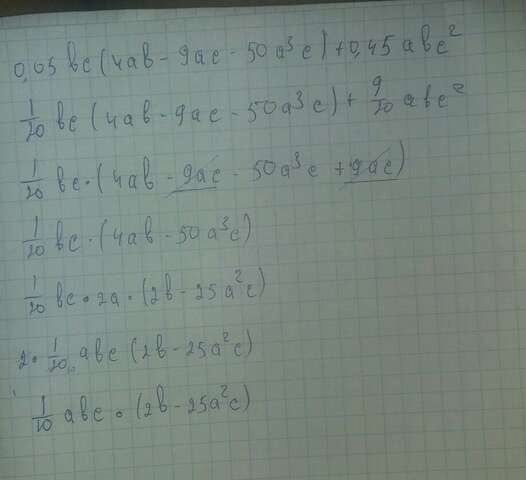 0,05 bc (4ab - 9ac - 50a³c) + 0,45 abc²
1/20 bc (4ab - 9ac - 50a³c) + 9/20 abc²
1/20 bc · (4ab - 9ac - 50a³c + 9ac)
1/20 bc · (4ab - 50a³c)
1/20 bc · 2a · (2b - 25a²c)
2 · 1/20 abc (2b - 25a²c)
1/10 abc · (2b - 25a²c)